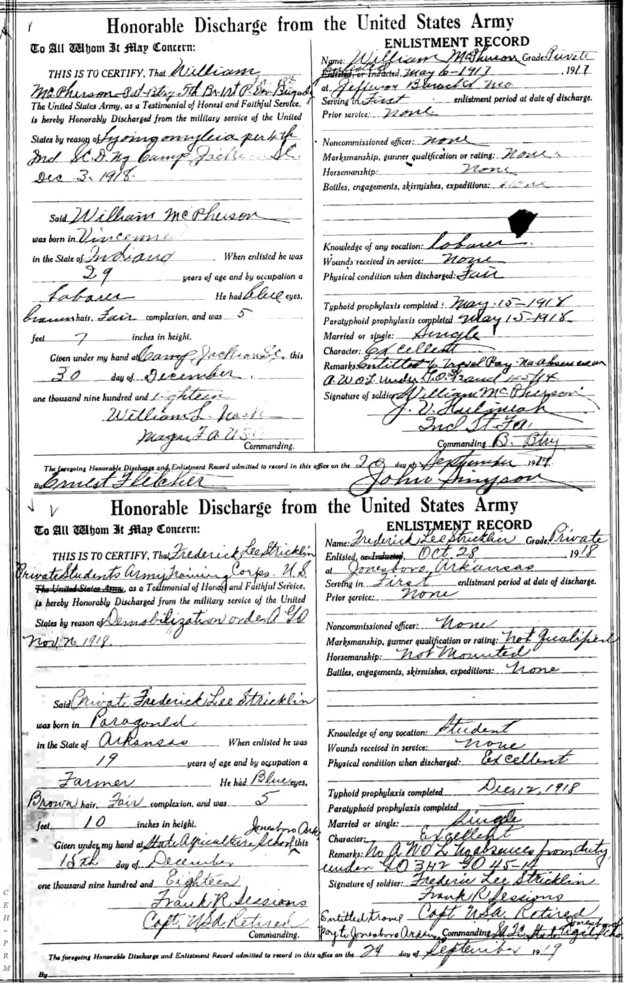 Honorable Discharge from the United States Army
To All Whom It May Concern:
THIS IS TO CERTIFY, That William
McPherson
The United States Army, as a Testimonial of Honest and Faithful Service,
is hereby Honorably Discharged from the military service of the United
States by reason of
Ind S.C.D. Camp Jackson S.C.
Dec 3. 1918.
Said William McPherson
was born in Vincennes
in the State of Indiana When enlisted he was
29 years of age and by occupation a
Laborer He had Blue eyes,
brown hair, Fair complexion, and was 5
feet 7 inches in height.
Given under my hand at Camp Jackson S.C. this
30 day of December
one thousand nine hundred and eighteen
William L. Nash
Major F.A. U.S.A.
Commanding.
ENLISTMENT RECORD
Name: William McPherson Grade: Private
Enlisted, or Inducted, May 6-1917, 1917
at Jefferson Barracks Mo
Serving in First enlistment period at date of discharge.
Prior service: none
Noncommissioned officer: none
Marksmanship, gunner qualification or rating: None
Horsemanship: None
Battles, engagements, skirmishes, expeditions: None
Knowledge of any vocation: Laborer
Wounds received in service: None
Physical condition when discharged: Fair
Typhoid prophylaxis completed: May-15-1918
Paratyphoid prophylaxis completed May 15-1918
Married or single: Single
Character: Excellent
Remarks: Entitled to Travel Pay. No absence on
A.W.O.L. under G.O.
Signature of soldier: William McPherson
J. V.
Commanding B. Btry
The foregoing Honorable Discharge and Enlistment Record admitted to record in this office on the 29 day of September 1919
By Ernest Fletcher John Simpson
Honorable Discharge from the United States Army
To All Whom It May Concern:
THIS IS TO CERTIFY, That Frederick Lee Stricklin
Private Students Army Training Corps. U.S.
The United States Army, as a Testimonial of Honest and Faithful Service,
is hereby Honorably Discharged from the military service of the United
States by reason of Demobilization order
Nov 26, 1918.
Said Private Frederick Lee Stricklin
was born in Paragould
in the State of Arkansas When enlisted he was
19 years of age and by occupation a
Farmer He had Blue eyes,
Brown hair, Fair complexion, and was 5
feet 10 inches in height. Jonesboro Ark
Given under my hand at State Agriculture School this
day of December
one thousand nine hundred and Eighteen
Frank R. Sessions
Capt. USA Retired
Commanding.
ENLISTMENT RECORD
Name: Frederick Lee Stricklin Grade: Private
Enlisted, or Inducted, Oct. 28, 1918
at Jonesboro, Arkansas
Serving in First enlistment period at date of discharge.
Prior service: None
Noncommissioned officer: None
Marksmanship, gunner qualification or rating: Not Qualified
Horsemanship: Not Mounted
Battles, engagements, skirmishes, expeditions: None
Knowledge of any vocation: Student
Wounds received in service: None
Physical condition when discharged: Excellent
Typhoid prophylaxis completed Dec. 12, 1918
Paratyphoid prophylaxis completed
Married or single: Single
Character: Excellent
Remarks: No A.W.O.L. No absences from duty
under G.O 31 42 G.O 45-14
Signature of soldier: Frederic Lee Stricklin
Frank R. Sessions
Capt USA. Retired
Entitled travel
pay to Jonesboro Commanding
The foregoing Honorable Discharge and Enlistment Record admitted to record in this office on the 29 day of September 1919
By
CEH-PRM